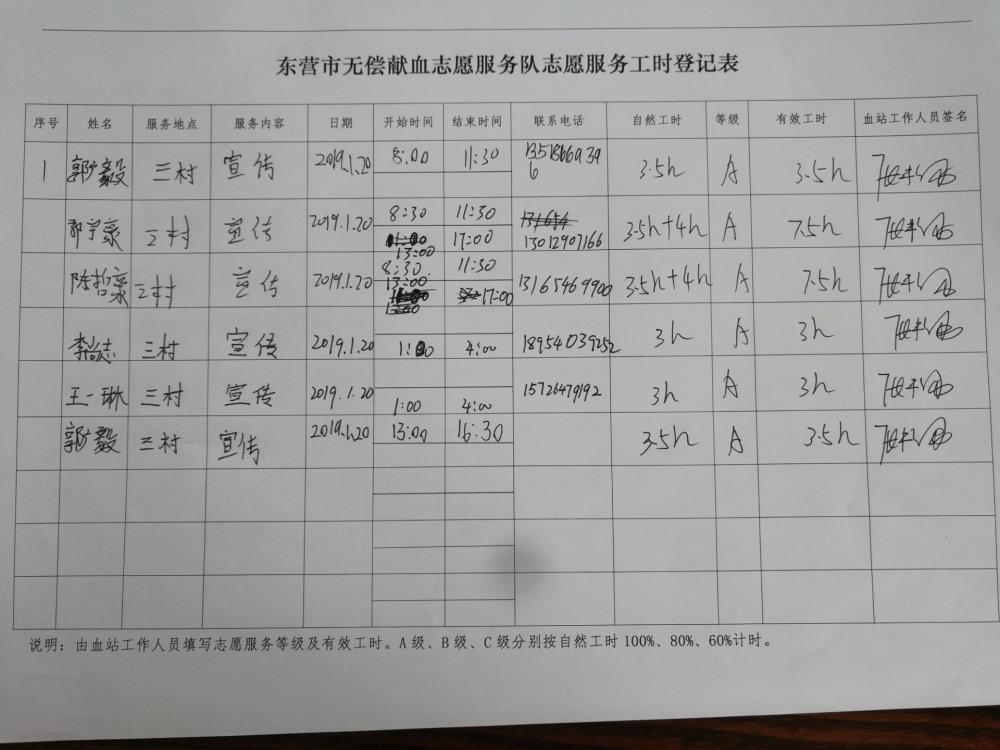 东营市无偿献血志愿服务队志愿服务工时登记表
序号 姓名 服务地点 服务内容 日期 开始时间 结束时间 联系电话 自然工时 等级 有效工时 血站工作人员签名
1 郭毅 三村 宣传 2019.1.20 8:00 11:30 13518669396 3.5h A 3.5h
三村 宣传 2019.1.20 8:30 11:30 3.5h+4h A 7.5h
13:00 17:00 13012907166
陈哲豪 三村 宣传 2019.1.20 8:30 11:30 13165469900 3.5h+4h A 7.5h
13:00 17:00
三村 宣传 2019.1.20 1:00 4:00 18954039252 3h A 3h
王一琳 三村 宣传 2019.1.20 1:00 4:00 15726479192 3h A 3h
郭毅 三村 宣传 2019.1.20 13:00 16:30 3.5h A 3.5h
说明：由血站工作人员填写志愿服务等级及有效工时。A级、B级、C级分别按自然工时100%、80%、60%计时。